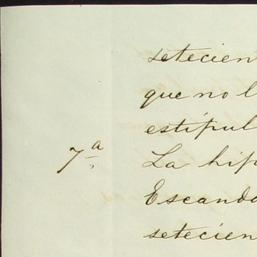 setecien
que no l
estipul
7ª La hip
Escando
setecien